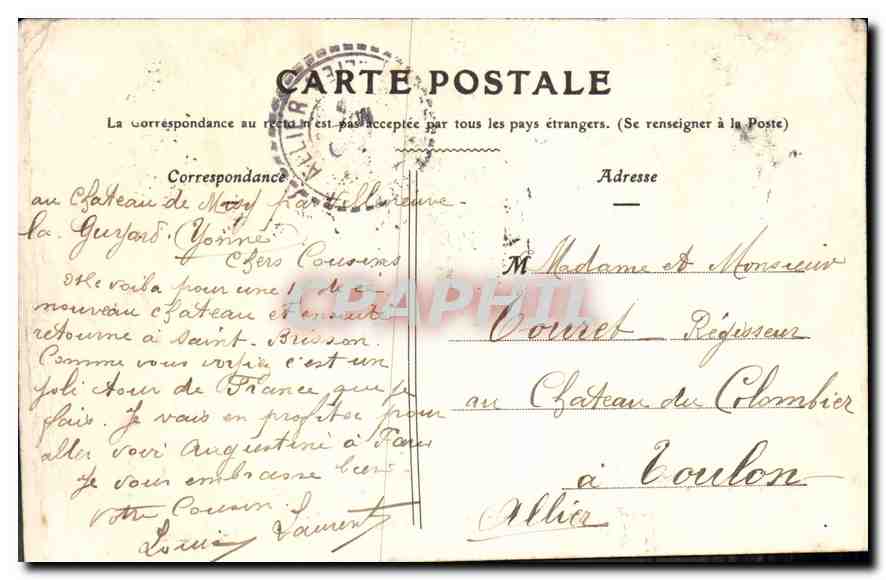 CARTE POSTALE
La Correspondance au recto n'est pas acceptée par tous les pays étrangers. (Se renseigner à la Poste)
Correspondance
au Chateau de Misy par Villeneuve
la Guyard Yonne
Chers Cousins
Me voila pour une de ce
nouveau chateau et ensuite
retourne à Saint-Brisson.
Comme vous voyez c'est un
joli tour de France que je
fais. Je vais en profiter pour
aller voir Augustine à Paris
Je vous embrasse bien
votre Cousin
Louis Laurent
Adresse
M Madame et Monsieur
Touret Régisseur
au Chateau du Colombier
à Toulon
Allier
ALLIER
CPAPHIL